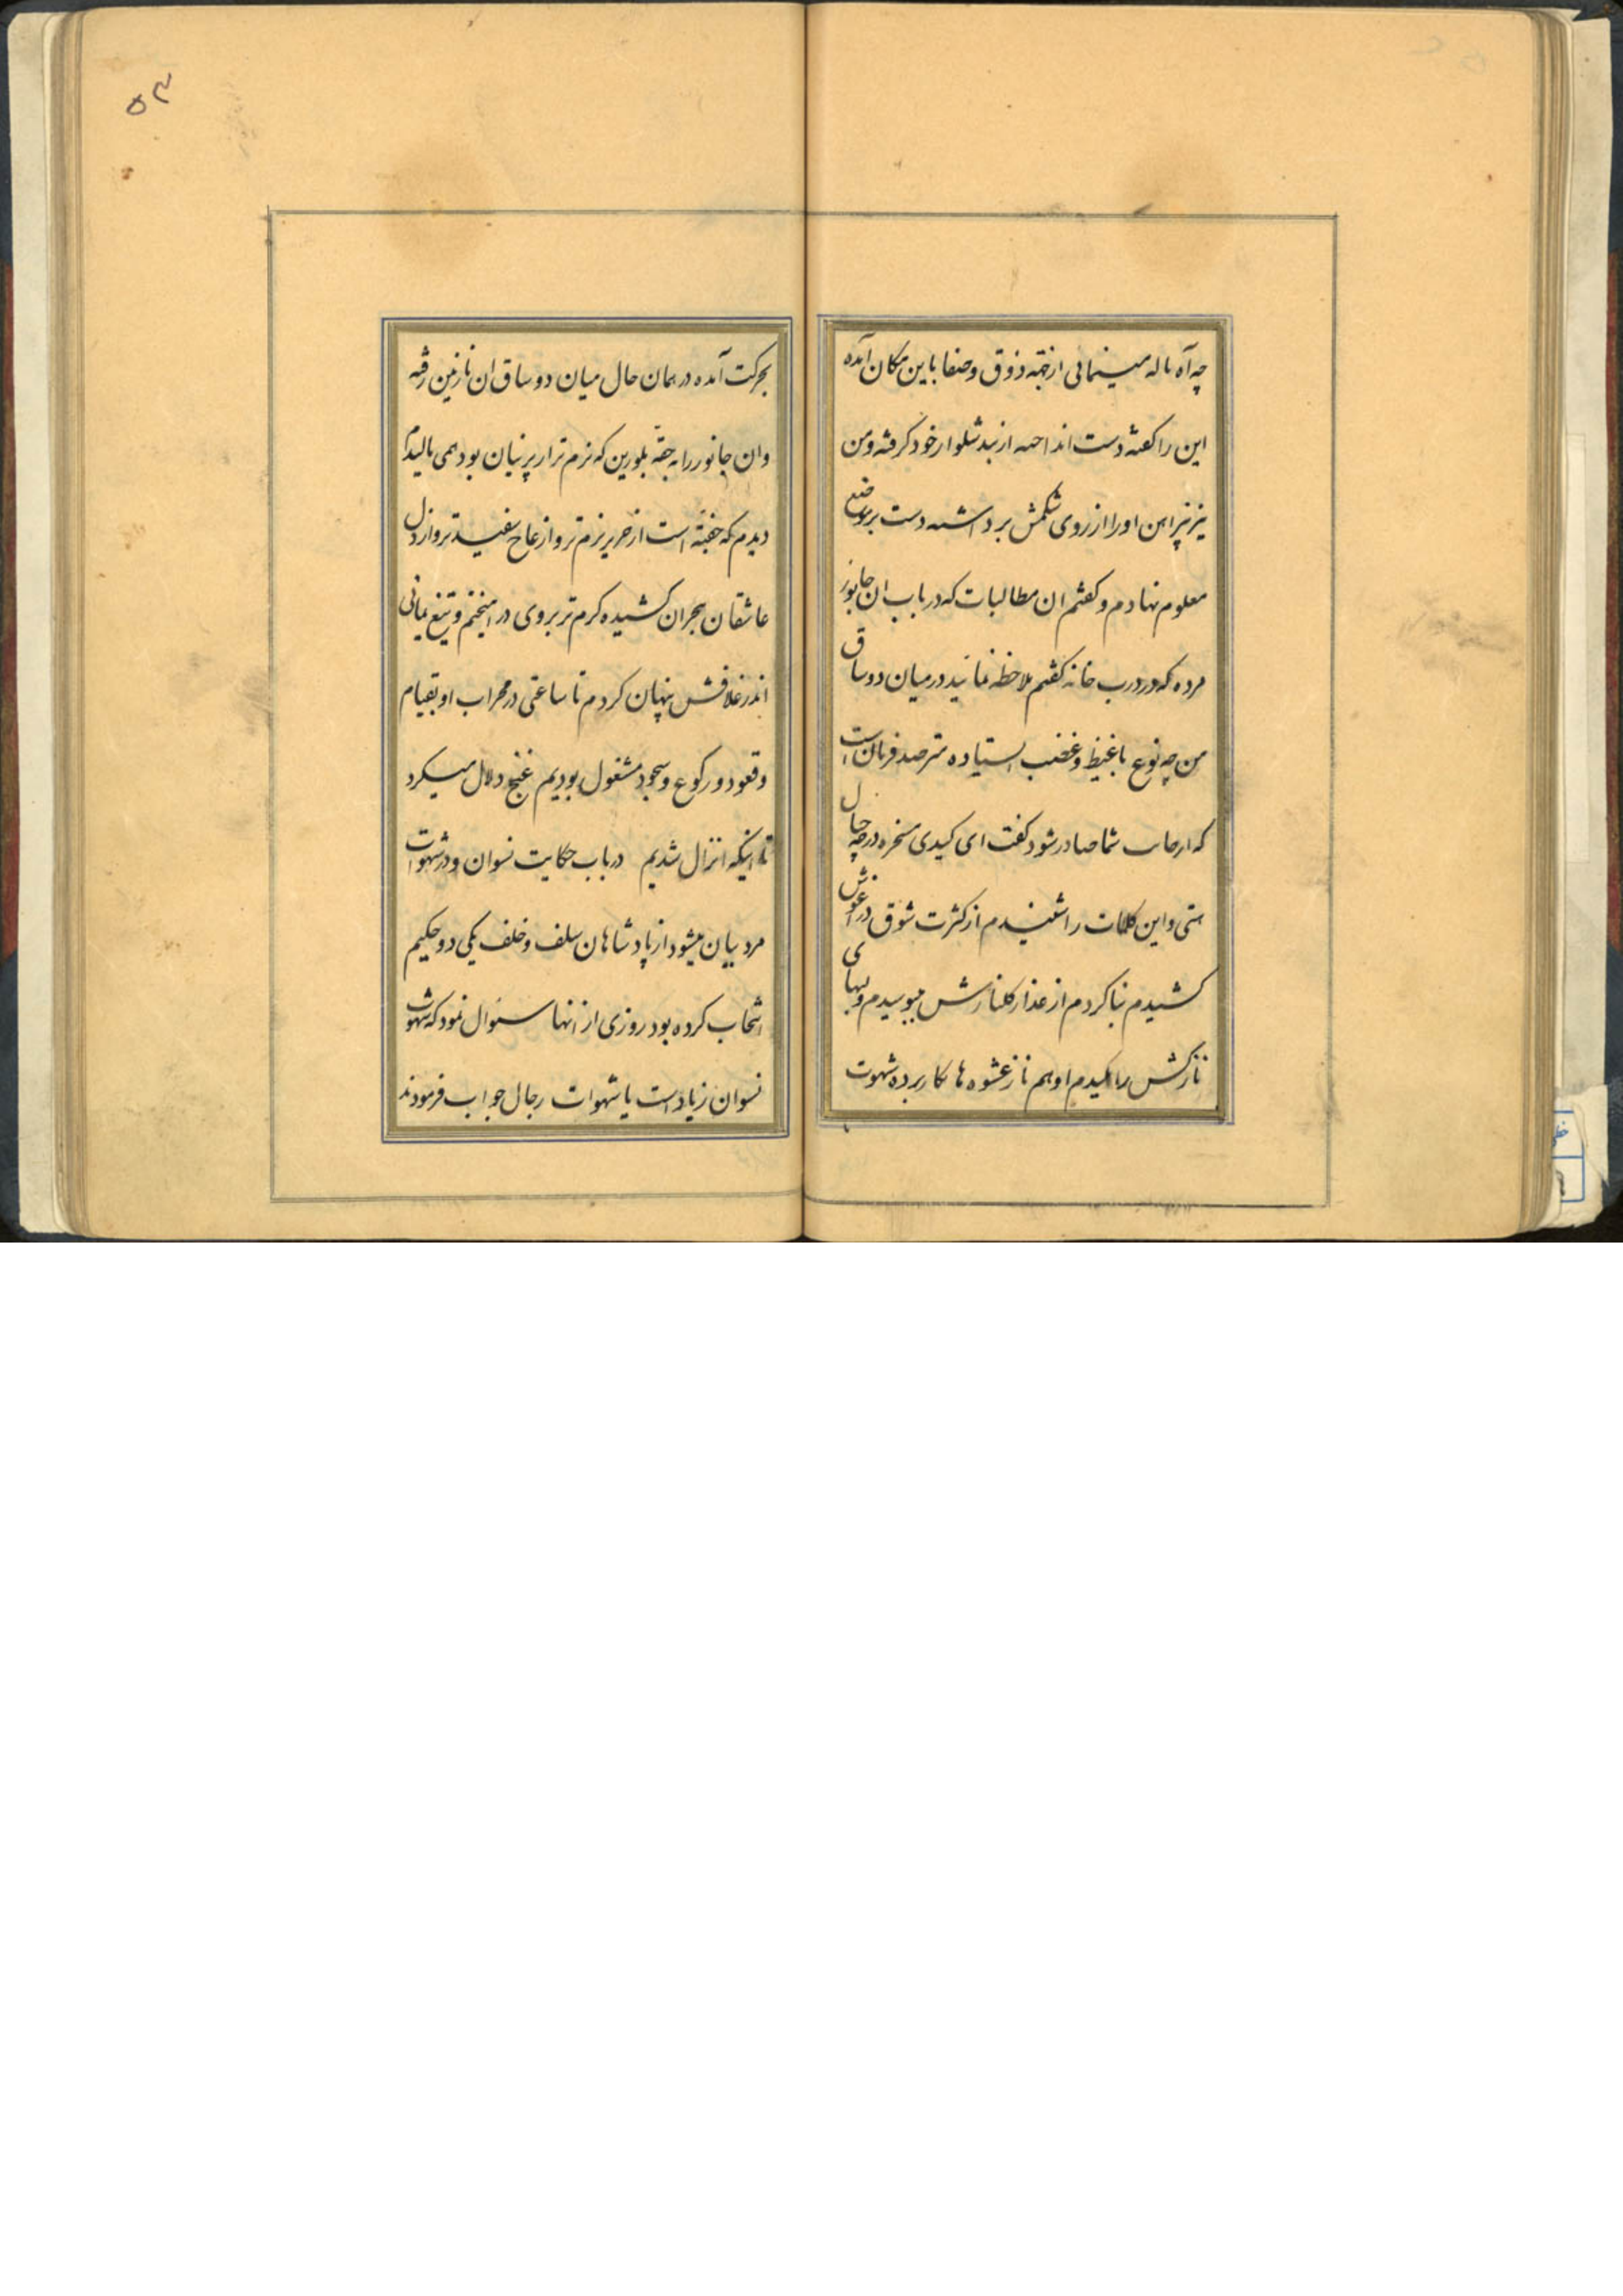 چه آه ناله مینمائی از تتمه ذوق و صفا باین مکان آمده
این را گفته دست انداخته از بند شلوار خود گرفته و من
نیز پیراهن او را از روی شکمش برداشته دست بر موضع
معلوم نهادم و گفتم ان مطالبات که در باب ان جانور
مرده که در درب خانه گفتم ملاحظه نمائید در میان دو ساق
من چه نوع با غیظ و غضب ایستاده مترصد فرمان است
که از جانب شما صادر شود گفت ای کیدی مسخره در چه حال
هستی و این کلمات را شنیدم از کثرت شوق در اغوش
کشیدم بنا کردم از عذار گلنارش میبوسیدم و لبهای
نازکش را مکیدم او هم ناز عشوه ها بکار برده شهوت
۵۳
بحرکت آمده در همان حال میان دو ساق ان نازنین رفته
وان جانور را به حقه بلورین که نرم تر از پرنیان بود همی مالیدم
دیدم که خفته است از حریر نرم تر و از عاج سفید تر و از دل
عاشقان هجران کشیده گرم تر بروی در امیختم و تیغ یمانی
اندر غلافش پنهان کردم تا ساعتی در محراب او بقیام
و قعود و رکوع و سجود مشغول بودیم غنج دلال میکرد
تا اینکه انزال شدیم در باب حکایت نسوان و در شهوات
مرد بیان میشود از پادشاهان سلف و خلف یکی دو حکیم
انتخاب کرده بود روزی از انها سئوال نمود که شهوت
نسوان زیاد است یا شهوات رجال جواب فرمودند